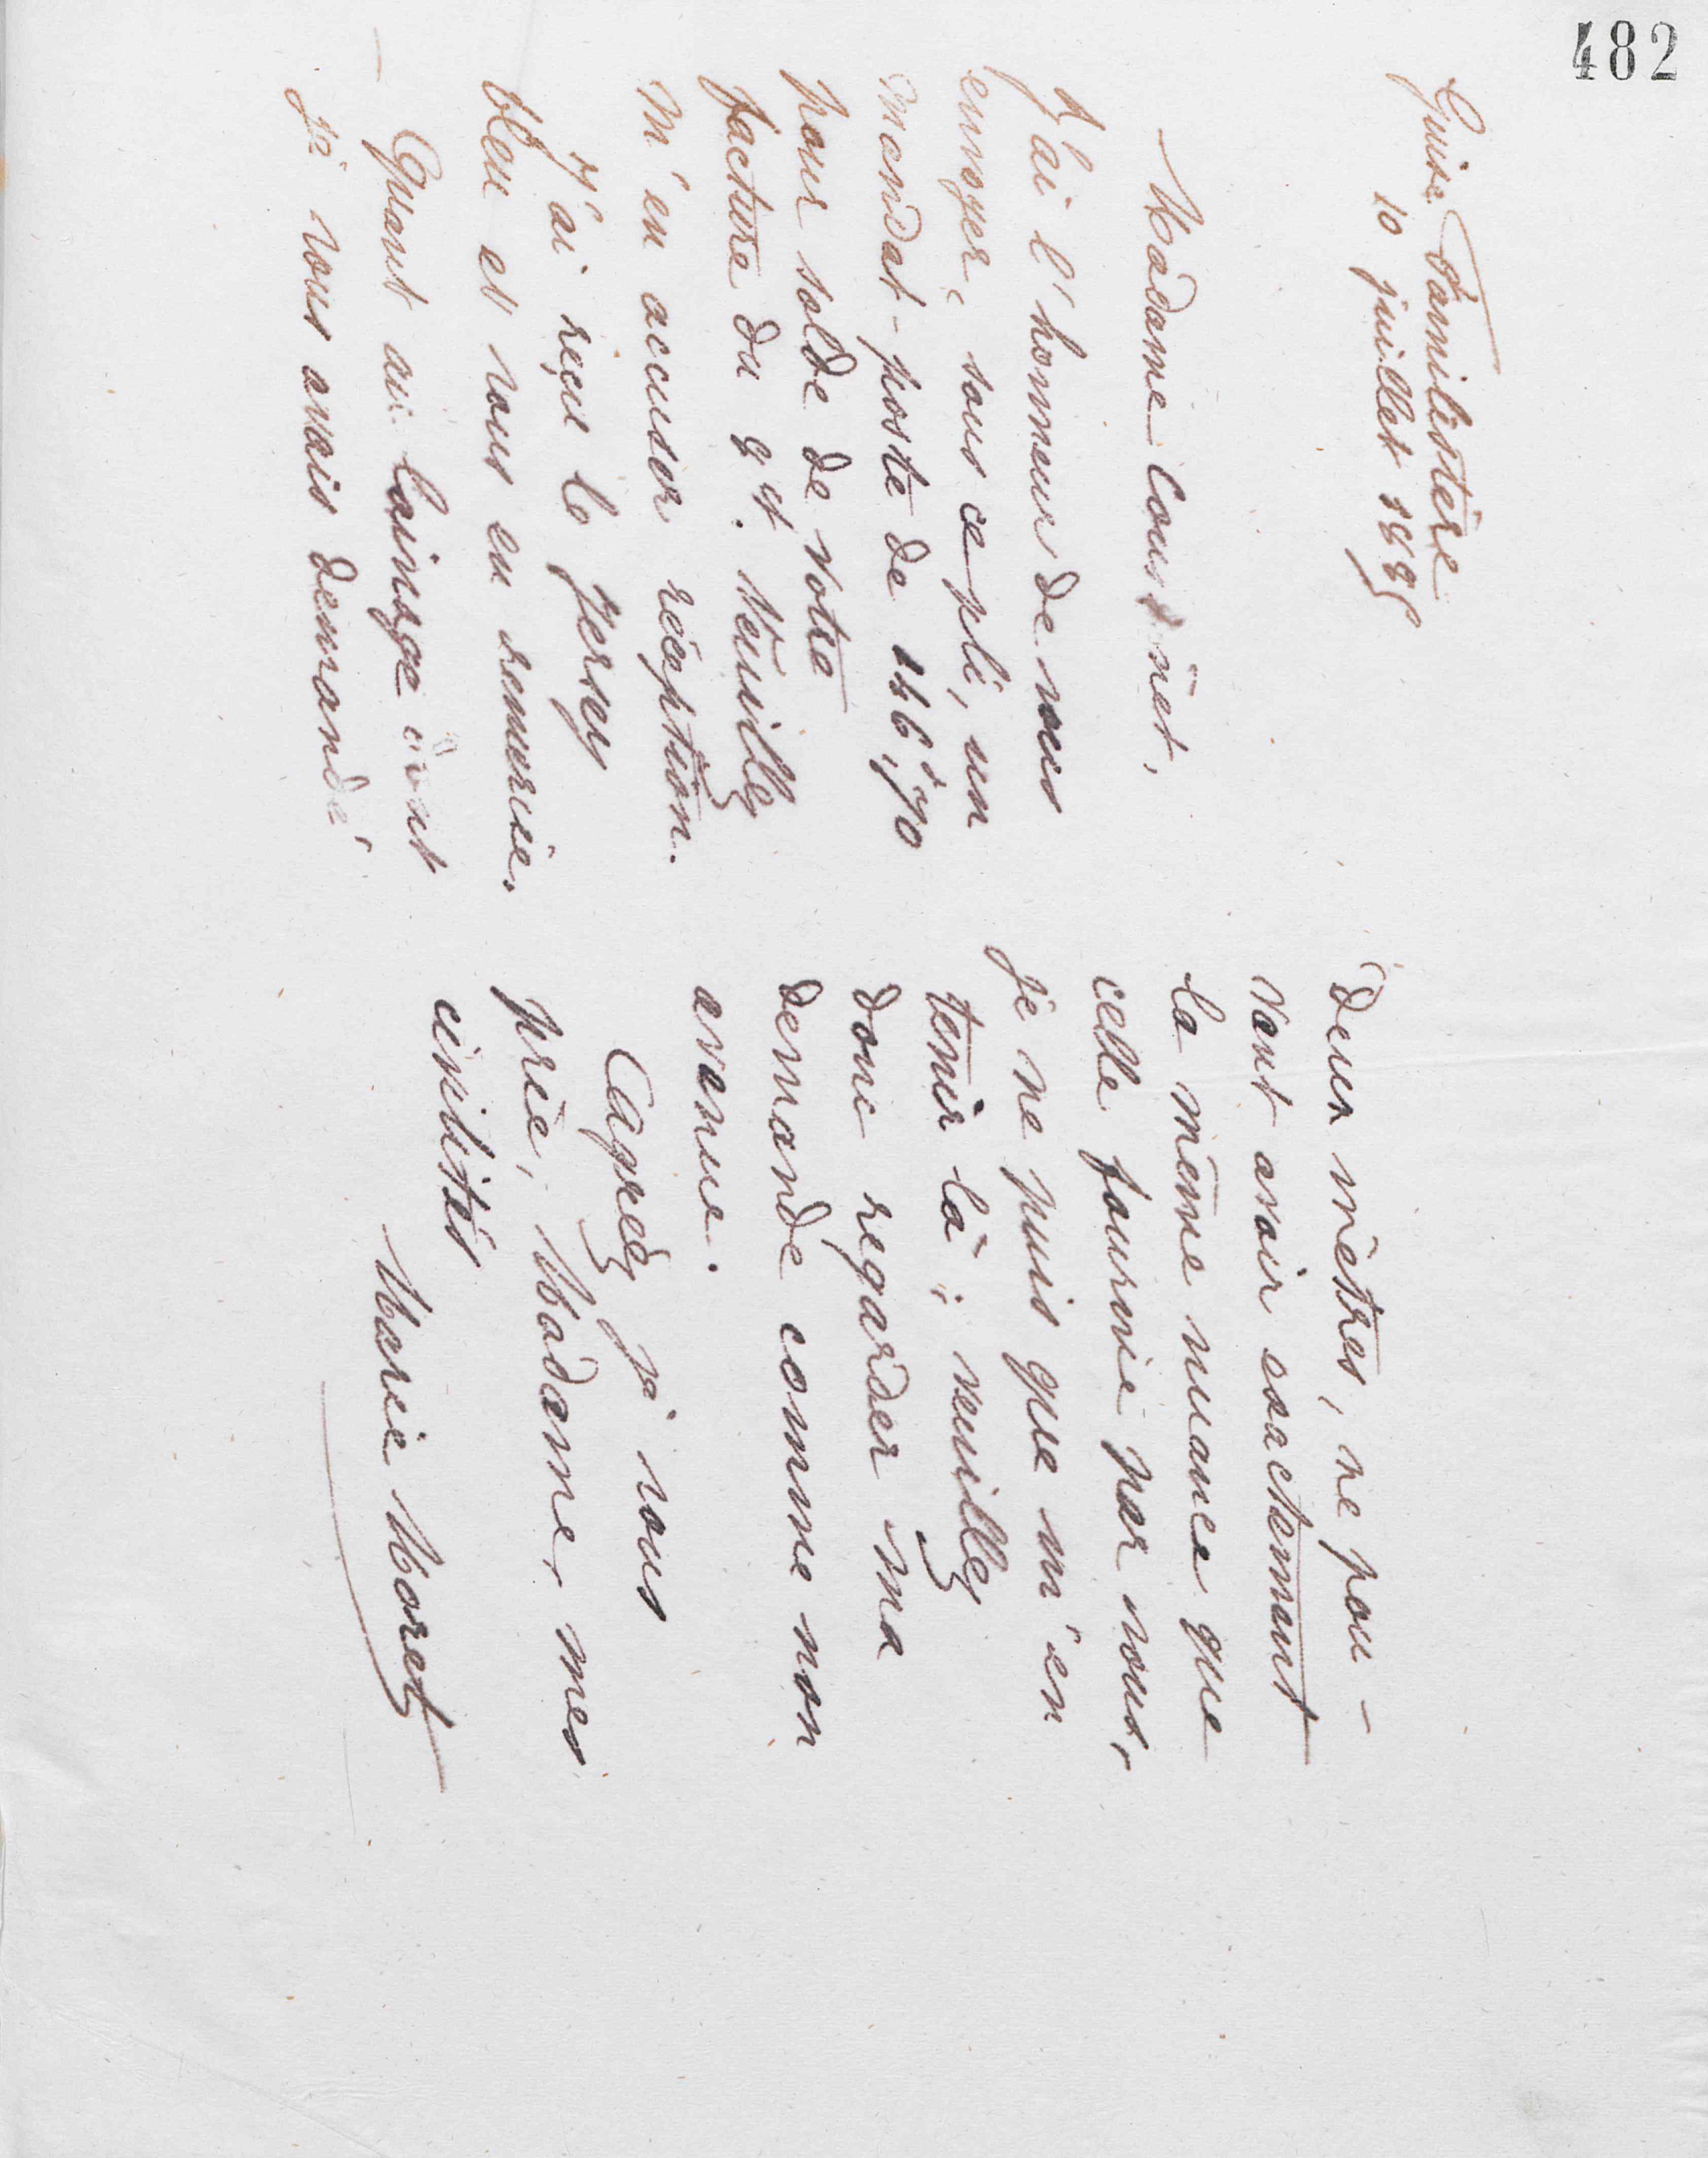 482
Guise Familistère
10 juillet 1895
Madame Cousinet,
J'ai l'honneur de vous
envoyer, sous ce pli, un
mandat-poste de 146f,70
pour solde de votre
facture du 9 ct. Veuillez
m'en accuser réception.
J'ai reçu le jersey
bleu et vous en remercie.
Quant au lainage dont
je vous avais demandé
deux mètres, ne pou-
vant avoir exactement
la même nuance que
celle fournie par vous,
je ne puis que m'en
tenir là ; veuillez
donc regarder ma
demande comme non
avenue.
Agréez je vous
prie, Madame, mes
civilités
Marie Moret